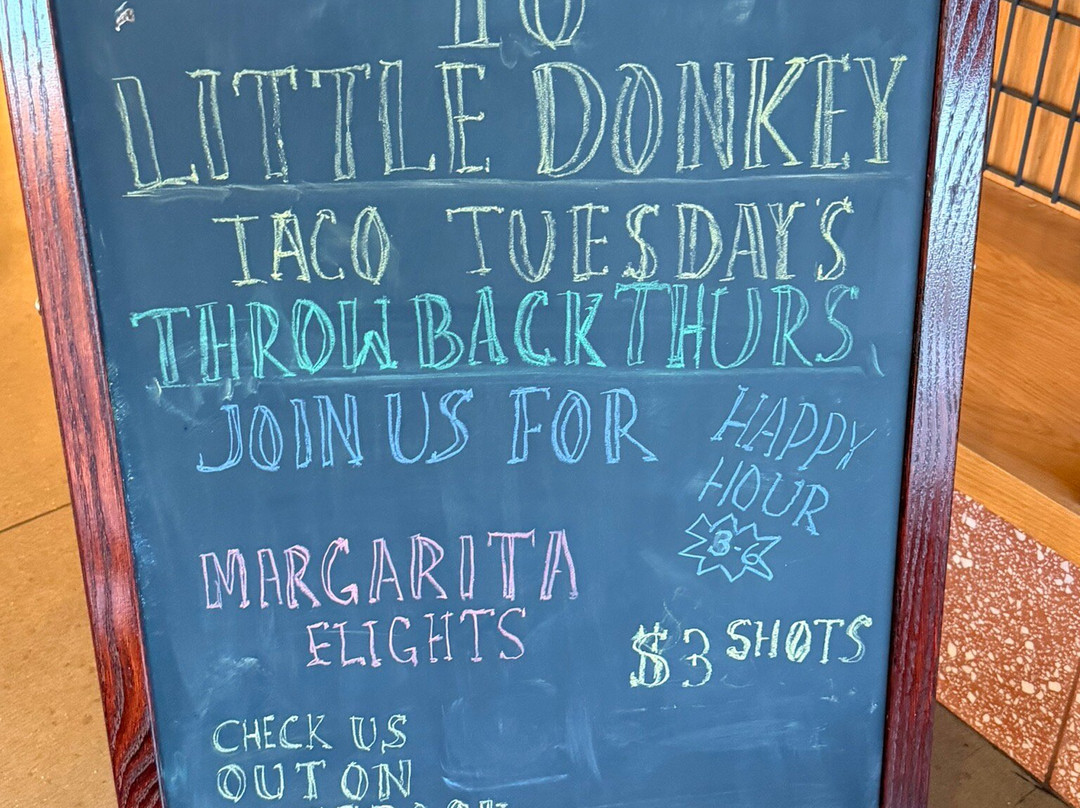 TO
LITTLE DONKEY
TACO TUESDAY'S
THROWBACK THURS
JOIN US FOR
HAPPY
HOUR
3-6
MARGARITA
FLIGHTS
$3 SHOTS
CHECK US
OUT ON